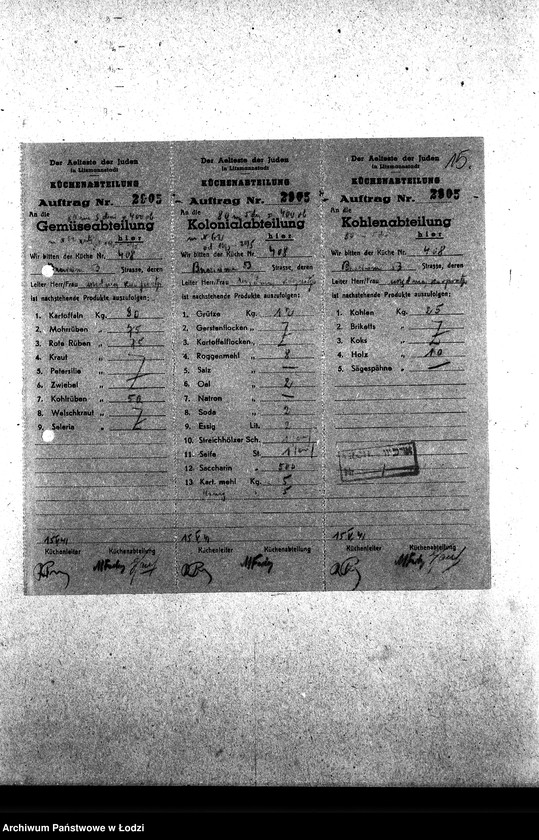 15
Der Aelteste der Juden
in Litzmannstadt
KÜCHENABTEILUNG
Auftrag Nr. 2905
An die
Gemüseabteilung
hier
Wir bitten der Küche Nr. 408
13 Strasse, deren
Leiter Herr/Frau
ist nachstehende Produkte auszufolgen:
1. Kartoffeln Kg. 80
2. Mohrrüben „ 75
3. Rote Rüben „ 75
4. Kraut „
5. Petersilie „
6. Zwiebel „
7. Kohlrüben „ 50
8. Welschkraut „
9. Selerie „
15 V 41
Küchenleiter Küchenabteilung
Der Aelteste der Juden
in Litzmannstadt
KÜCHENABTEILUNG
Auftrag Nr. 2905
An die
Kolonialabteilung
hier
Wir bitten der Küche Nr 408
13 Strasse, deren
Leiter Herr/Frau
ist nachstehende Produkte auszufolgen:
1. Grütze Kg.
2. Gerstenflocken „
3. Kartoffelflocken „
4. Roggenmehl „ 8
5. Salz „ —
6. Oel „ 2
7. Natron „ —
8. Soda „ 2
9. Essig Lit. 2
10. Streichhölzer Sch.
11. Seife St. 1
12. Saccharin „ 500
13 Kart. mehl Kg. 5
„ 5
15 V 41
Küchenleiter Küchenabteilung
Der Aelteste der Juden
in Litzmannstadt
KÜCHENABTEILUNG
Auftrag Nr. 2905
An die
Kohlenabteilung
hier
Wir bitten der Küche Nr. 408
13 Strasse, deren
Leiter Herr/Frau
ist nachstehende Produkte auszufolgen:
1. Kohlen Kg. 25
2. Briketts „
3. Koks „
4. Holz „ 10
5. Sägespähne „ —
15 V 41
Küchenleiter Küchenabteilung
Archiwum Państwowe w Łodzi